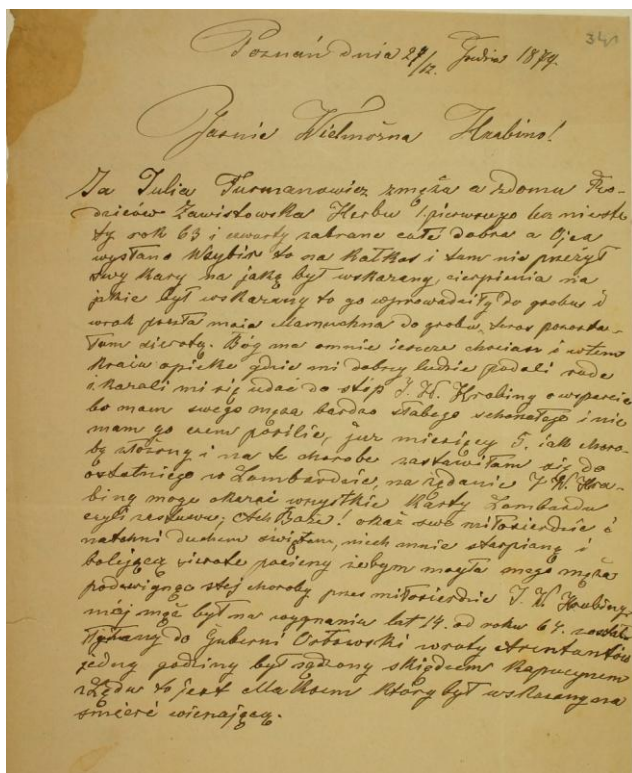 341
Poznań dnia 27/12. Grudnia 1879.
Jaśnie Wielmożna Hrabino!
Ja Julia Furmanowicz zmęża a zdomu Ro-
dziców Zawistowska Herbu 1 pierwszego lecz nieste-
ty rok 63 i cwarty zabrano całe dobra a Ojca
wysłano Wsybir to na Kałkas i tam nie przeżył
swy kary na jaką był wskazany, cierpienia na
jakie był wskazany to go wprowadziły do grobu i
wrok poszła moia Mamuchna do grobu, teras pozosta-
łam sierotą. Bóg ma omnie iescze chociasz i wtem
kraiu opiekę gdzie mi dobrzy ludzie podali radę
i kazali mi się udać do stóp J. W. Hrabiny o wsparcie
bo mam swego męża bardzo słabego schorzałego i nie
mam go czem posilić, już miesięcy 5. iak choro-
bą złożony i na te chorobe zastawiłam się do
ostatniego w Lombardzie, na rządanie J W. Hra-
biny mogę okazać wszystkie Karty Lombardu
czyli zastawu; Ach Boże! okaż swe miłosierdzie i
natchni duchem świętem, niech mnie starpianą i
bolejącą sierote pocieszy żebym mogła mego męża
podzwignąć stej choroby przez miłosierdzie J. W. Hrabiny,
mój mąż był na wygnaniu lat 14. od roku 64. został
do Guberni Orłowski wroty Arentantów
jedny godziny był sądzony skiędzem Kapucynem
z Lędu to jest Maksem który był wskazany na
śmierć wieszającą.